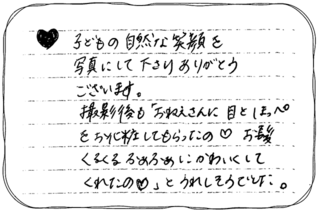 ♥ 子どもの自然な笑顔を
写真にして下さりありがとう
ございます。
撮影後も「おねえさんに 目とほっぺ
をお化粧してもらったの♡ お髪
くるくる かわいくして
くれたの♥」とうれしそうでした。